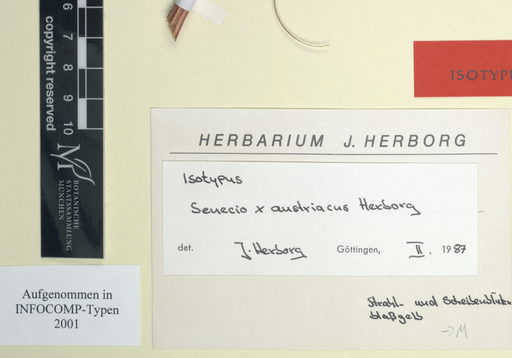 6
7
8
9
10
copyright reserved
M
BOTANISCHE
STAATSSAMMLUNG
MÜNCHEN
ISOTYPU
HERBARIUM J. HERBORG
Isotypus
Senecio x austriacus Herborg
det. J. Herborg Göttingen, II. 1987
Strahl- und Scheibenblüten
blaßgelb
→M
Aufgenommen in
INFOCOMP-Typen
2001